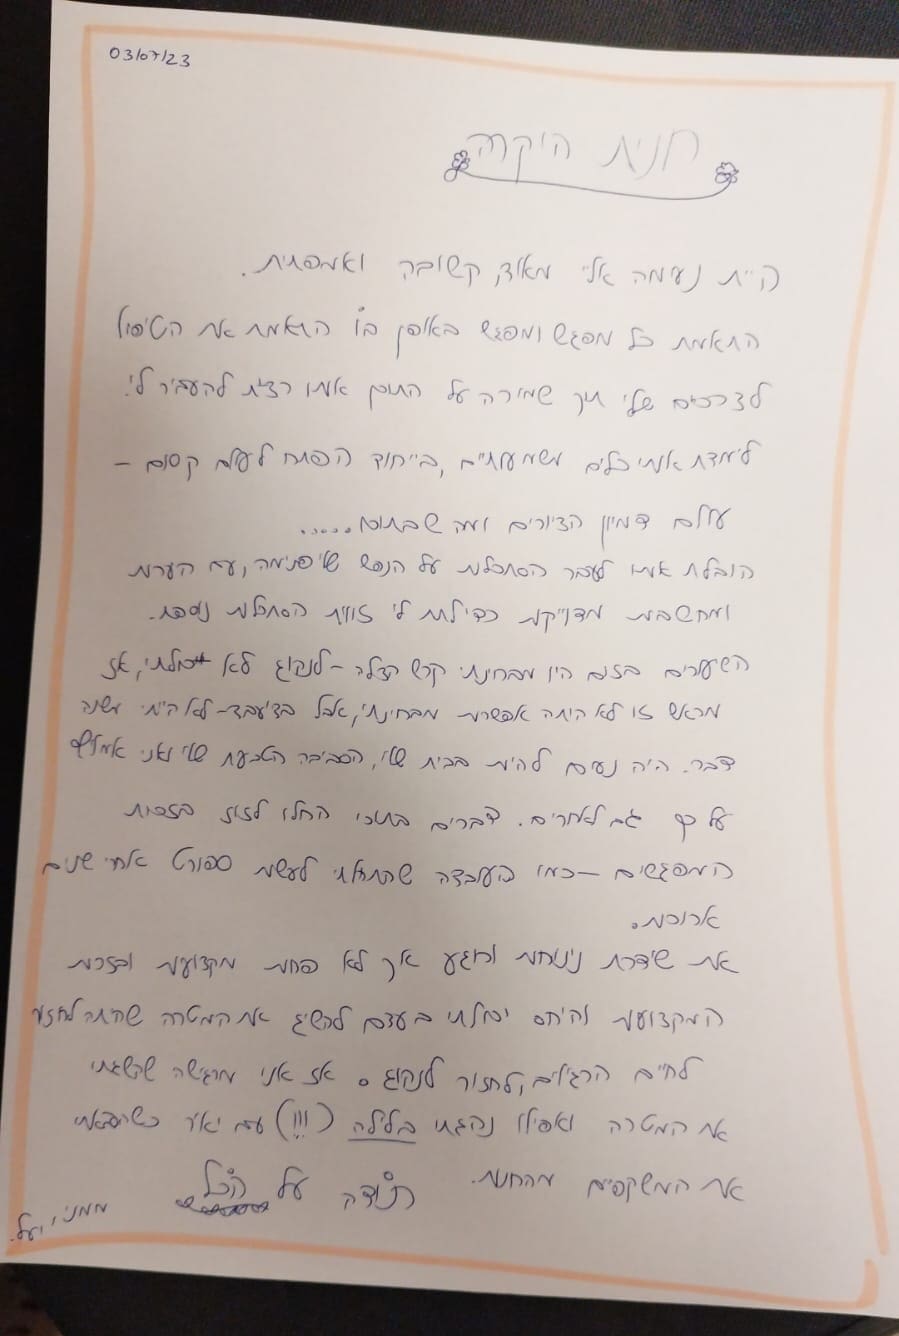 03/07/23
רונית היקרה
היית נעימה אליי מאוד, קשובה ואמפתית.
התאמת כל מפגש ומפגש באופן בו התאמת את הטיפול
לצרכים שלי תוך שמירה על התוכן אותו רצית להעביר לי.
לימדת אותי כלים משמעותיים, בייחוד הפתח לעולם קסום –
עולם דמיון הציורים ומה שבתוכו.....
הובלת אותי לעבר הסתכלות על הנפש שלי פנימה, עם הערות
ומחשבות מדוייקות כדי לתת לי זווית הסתכלות נוספת.
השיעורים בזום היו מבחינתי קרש הצלה – לנהוג לא יכולתי, אז
מראש זו לא היתה אפשרות מבחינתי, אבל בדיעבד – לא הייתי משנה
דבר. היה נעים להיות בבית שלי, הסביבה הטבעית שלי ואני אמליץ
על כך גם לאחרים. דברים בתוכי החלו לזוז בזכות
המפגשים – כמו העובדה שהתחלתי לעשות ספורט אחרי שנים
ארוכות.
את שידרת נינוחות ורוגע אך לא פחות מקצועיות ובזכות
המקצועיות והיחס יכולתי בעצם להשיג את המטרה שהיתה לחזור
לחיים הרגילים, לחזור לנהוג. אז אני מרגישה שהשגתי
את המטרה ואפילו נהגתי בלילה (!!!) עם יאיר כשהבאתי
את המשקפיים מהחנות. תודה על הכל
ממני, יעל.